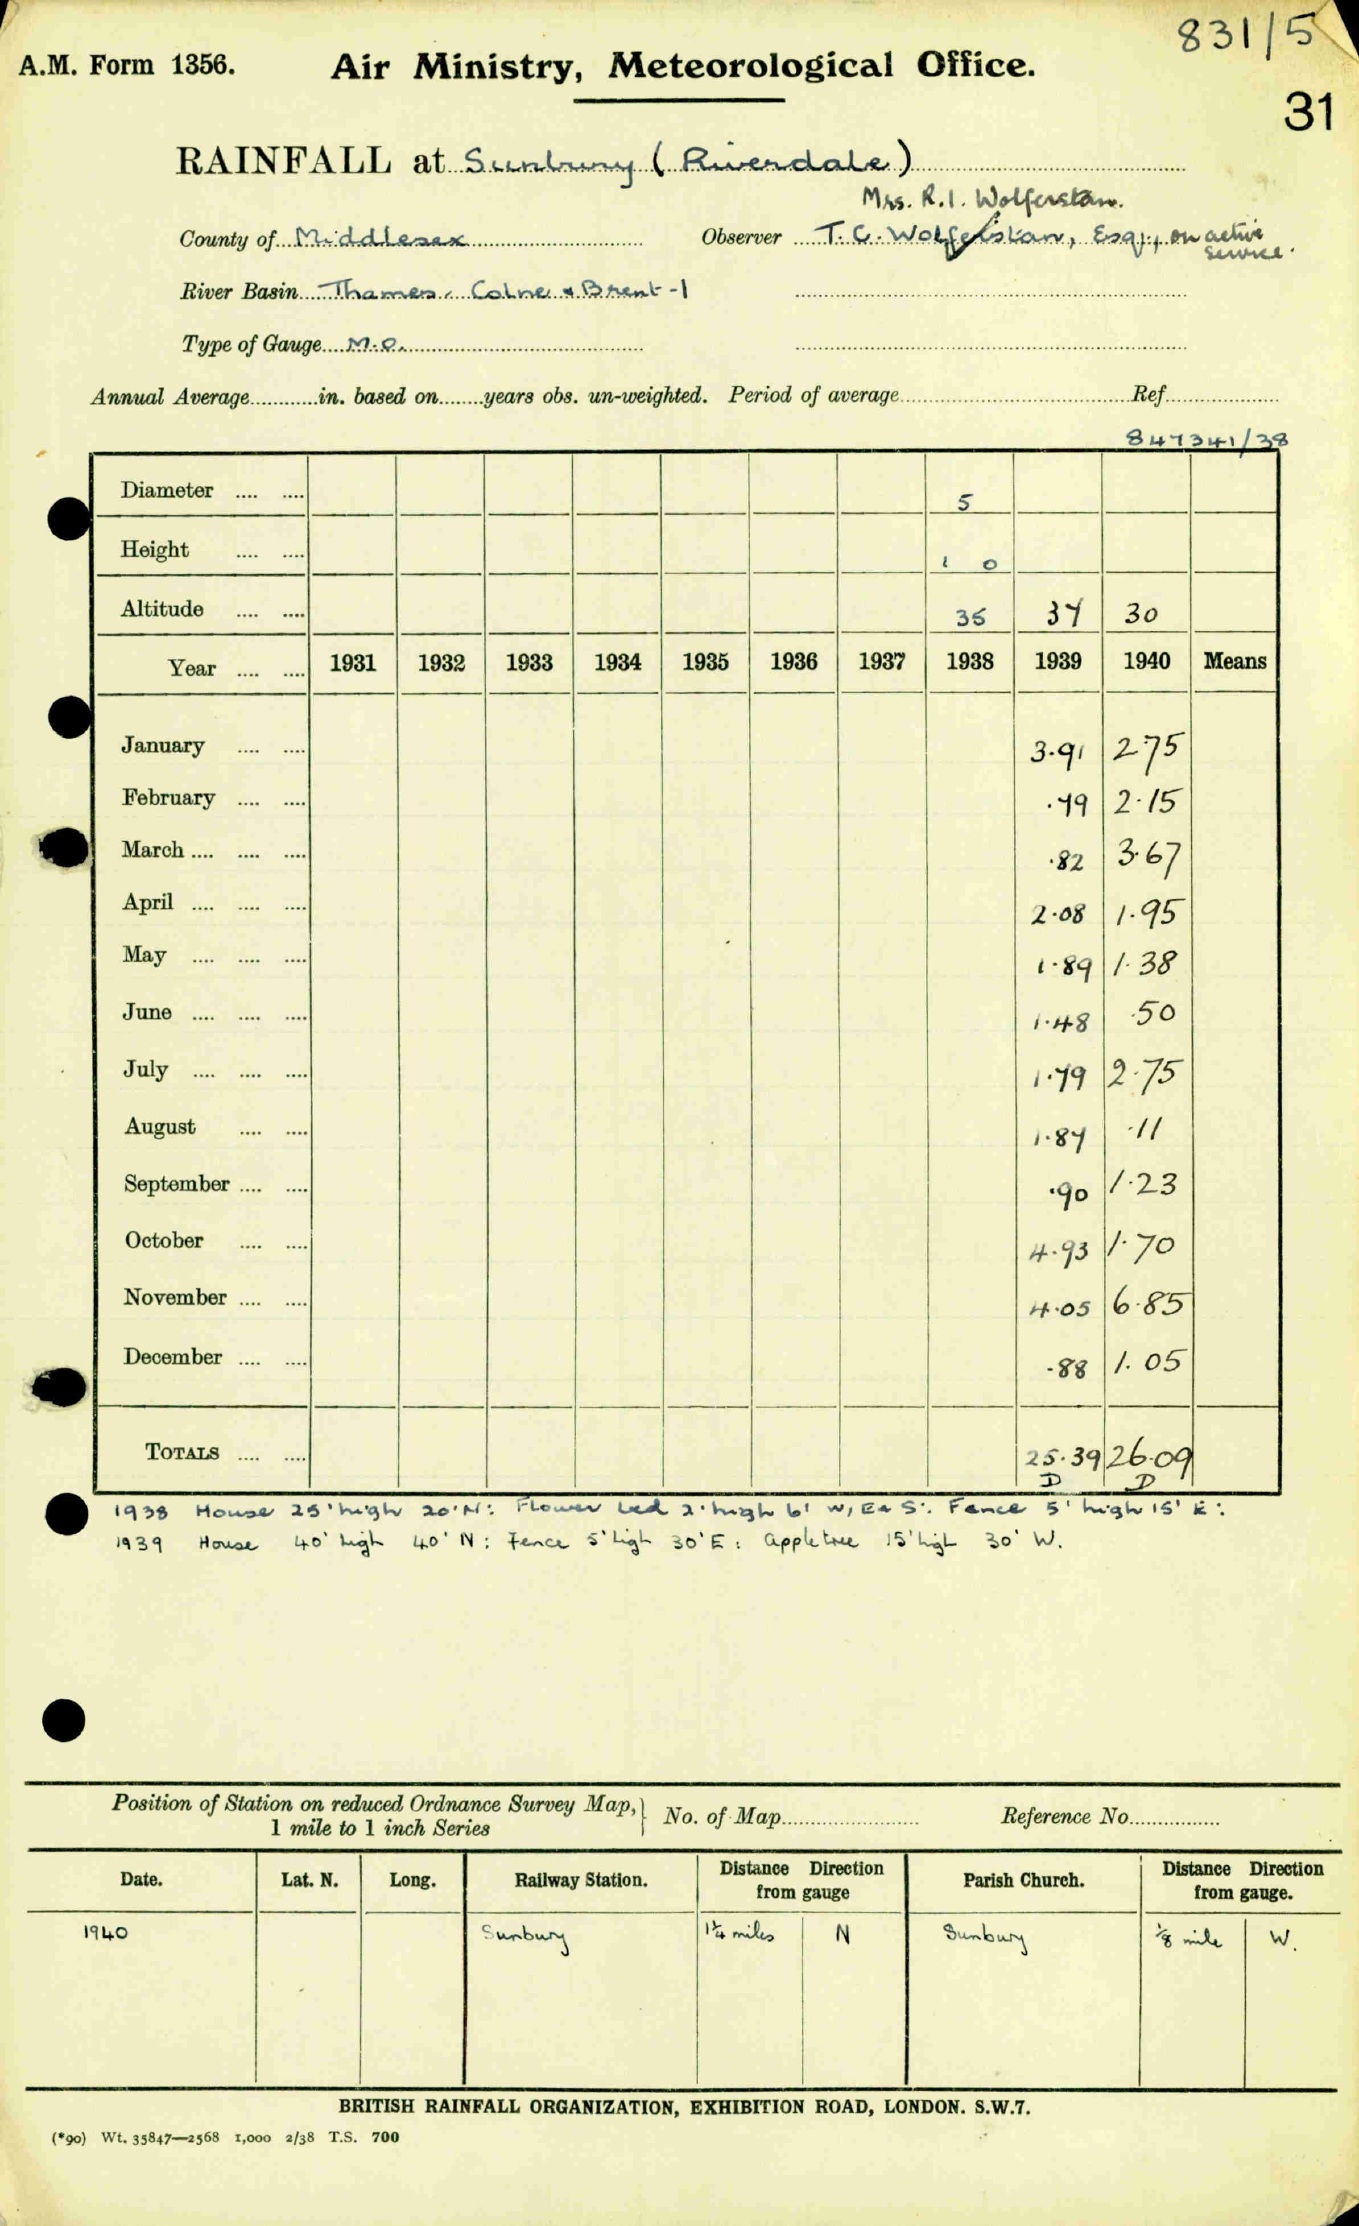 831/5
A.M. Form 1356. Air Ministry, Meteorological Office.
31
RAINFALL at Sunbury (Riverdale)
Mrs. R.I. Wolferstan.
County of Middlesex Observer T.C. Wolferstan, Esq., on active service.
River Basin Thames, Colne & Brent -1
Type of Gauge M.O.
Annual Average in. based on years obs. un-weighted. Period of average Ref
847341/38
Diameter 5
Height 1 0
Altitude 35 37 30
Year 1931 1932 1933 1934 1935 1936 1937 1938 1939 1940 Means
January 3.91 2.75
February .79 2.15
March .82 3.67
April 2.08 1.95
May 1.89 1.38
June 1.48 .50
July 1.79 2.75
August 1.87 .11
September .90 1.23
October 4.93 1.70
November 4.05 6.85
December .88 1.05
TOTALS 25.39 26.09
D D
1938 House 25' high 20' N: Flower bed 2' high 6' W, E & S: Fence 5' high 15' E:
1939 House 40' high 40' N: Fence 5' high 30' E: Apple tree 15' high 30' W.
Position of Station on reduced Ordnance Survey Map,} No. of Map Reference No
1 mile to 1 inch Series
Date. Lat. N. Long. Railway Station. Distance Direction from gauge Parish Church. Distance Direction from gauge.
1940 Sunbury 1¼ miles N Sunbury ⅛ mile W.
BRITISH RAINFALL ORGANIZATION, EXHIBITION ROAD, LONDON. S.W.7.
(*90) Wt. 35847—2568 1,000 2/38 T.S. 700